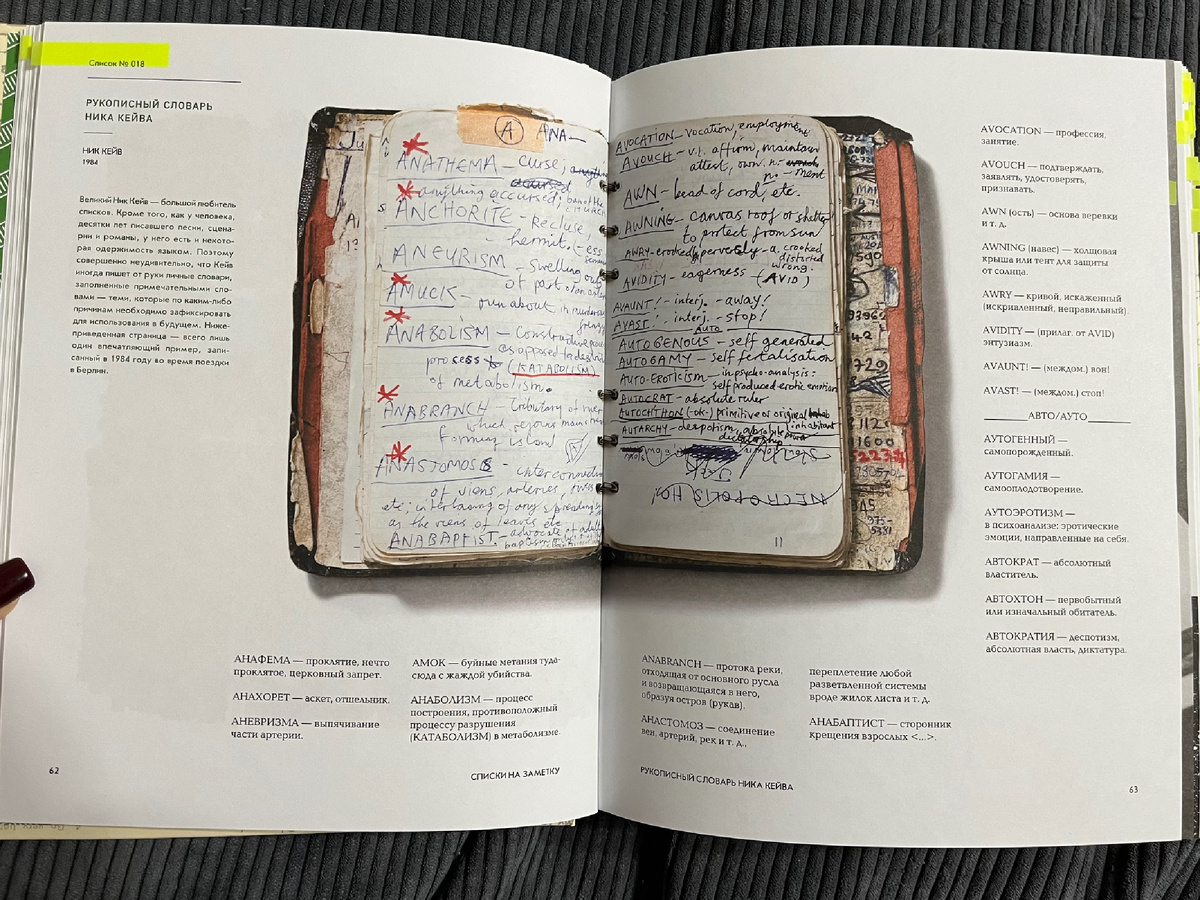 Список № 018
РУКОПИСНЫЙ СЛОВАРЬ
НИКА КЕЙВА
НИК КЕЙВ
1984
Великий Ник Кейв — большой любитель
списков. Кроме того, как у человека,
десятки лет писавшего песни, сцена-
рии и романы, у него есть и некото-
рая одержимость языком. Поэтому
совершенно неудивительно, что Кейв
иногда пишет от руки личные словари,
заполненные примечательными сло-
вами — теми, которые по каким-либо
причинам необходимо зафиксировать
для использования в будущем. Ниже-
приведенная страница — всего лишь
один впечатляющий пример, запи-
санный в 1984 году во время поездки
в Берлин.
A ANA—
ANATHEMA — curse; anything
accursed
anything accursed; ban of the church
ANCHORITE - Recluse,
- hermit. (-ess
ANEURISM - swelling out
of part of an
AMUCK - run about in
ANABOLISM - constructive
as opposed to
process (KATABOLISM)
of metabolism.
ANABRANCH - tributary of river
which rejoins main
forming island
ANASTOMOSIS - interconnection
of viens, arteries,
etc; interlacing of any spreading
as the viens of leaves etc
ANABAPTIST. - advocate of adult
baptism
AVOCATION - vocation, employment
AVOUCH - v.t. affirm, maintain
attest, own. n.
n. - ment
AWN - bead of cord, etc.
AWNING - canvas roof or shelter
to protect from sun
AWRY - crooked, perversly - a. crooked
distorted
wrong.
AVIDITY - eagerness (AVID)
AVAUNT! - interj. - away!
AVAST. - interj. - stop!
Auto
AUTOGENOUS - self generated
AUTOGAMY - self fertalisation
AUTO-EROTICISM - in psycho-analysis:
self produced erotic emotion
AUTOCRAT - absolute ruler
AUTOCHTHON (-ok-) primitive or original
inhabitant
AUTARCHY - despotism, absolute
dictatorship
NECROPOLIS
11
AVOCATION — профессия,
занятие.
AVOUCH — подтверждать,
заявлять, удостоверять,
признавать.
AWN (ость) — основа веревки
и т. д.
AWNING (навес) — холщовая
крыша или тент для защиты
от солнца.
AWRY — кривой, искаженный
(искривленный, неправильный).
AVIDITY — (прилаг. от AVID)
энтузиазм.
AVAUNT! — (междом.) вон!
AVAST! — (междом.) стоп!
АВТО/АУТО
АУТОГЕННЫЙ —
самопорожденный.
АУТОГАМИЯ —
самооплодотворение.
АУТОЭРОТИЗМ —
в психоанализе: эротические
эмоции, направленные на себя.
АВТОКРАТ — абсолютный
властитель.
АВТОХТОН — первобытный
или изначальный обитатель.
АВТОКРАТИЯ — деспотизм,
абсолютная власть, диктатура.
АНАФЕМА — проклятие, нечто
проклятое, церковный запрет.
АНАХОРЕТ — аскет, отшельник.
АНЕВРИЗМА — выпячивание
части артерии.
АМОК — буйные метания туда-
сюда с жаждой убийства.
АНАБОЛИЗМ — процесс
построения, противоположный
процессу разрушения
(КАТАБОЛИЗМ) в метаболизме.
ANABRANCH — протока реки,
отходящая от основного русла
и возвращающаяся в него,
образуя остров (рукав).
АНАСТОМОЗ — соединение
вен, артерий, рек и т. д.,
переплетение любой
разветвленной системы
вроде жилок листа и т. д.
АНАБАПТИСТ — сторонник
крещения взрослых <...>.
62
СПИСКИ НА ЗАМЕТКУ
РУКОПИСНЫЙ СЛОВАРЬ НИКА КЕЙВА
63